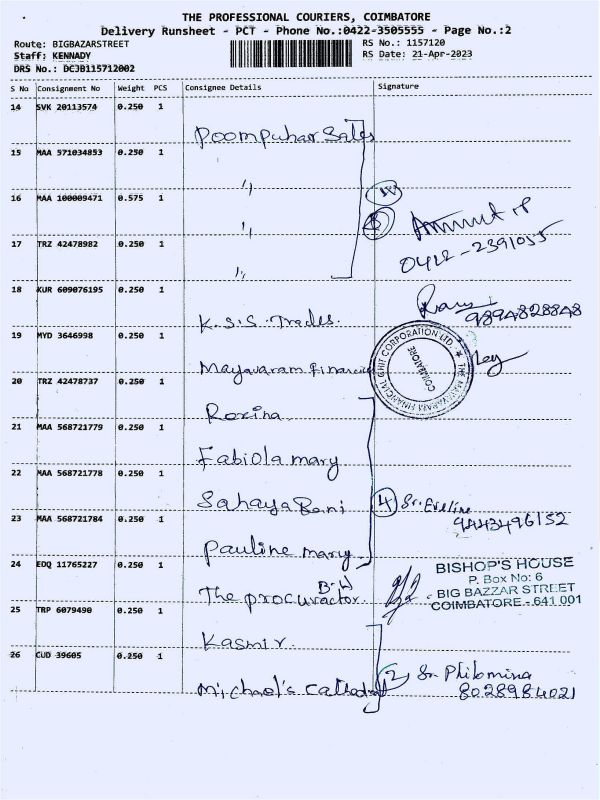 THE PROFESSIONAL COURIERS, COIMBATORE
Delivery Runsheet - PCT - Phone No.:0422-3505555 - Page No.:2
Route: BIGBAZARSTREET
RS No.: 1157120
Staff: KENNADY
RS Date: 21-Apr-2023
DRS No.: DCJB115712002
S No Consignment No Weight PCS Consignee Details Signature
14 SVK 20113574 0.250 1
Poompuhar Sales
15 MAA 571034853 0.250 1
"
16 MAA 100009471 0.575 1
"
17 TRZ 42478982 0.250 1
"
0422-2391055
18 KUR 609076195 0.250 1
K.S.S. Trades.
9894828848
19 MYD 3646998 0.250 1
Mayavaram financial
THE MAYAVARAM FINANCIAL CHIT CORPORATION LTD. ★
COIMBATORE
20 TRZ 42478737 0.250 1
Roxina
21 MAA 568721779 0.250 1
Fabiola mary
22 MAA 568721778 0.250 1
Sahaya Rani
4 Sr. Eveline
9443496152
23 MAA 568721784 0.250 1
Pauline mary
24 EDQ 11765227 0.250 1
The procuractor. B-W
BISHOP'S HOUSE
P. Box No: 6
BIG BAZZAR STREET
COIMBATORE - 641 001
25 TRP 6079490 0.250 1
Kasmir.
26 CUD 39605 0.250 1
Michael's Cathedral
2 Sr. Philomina
8028984021